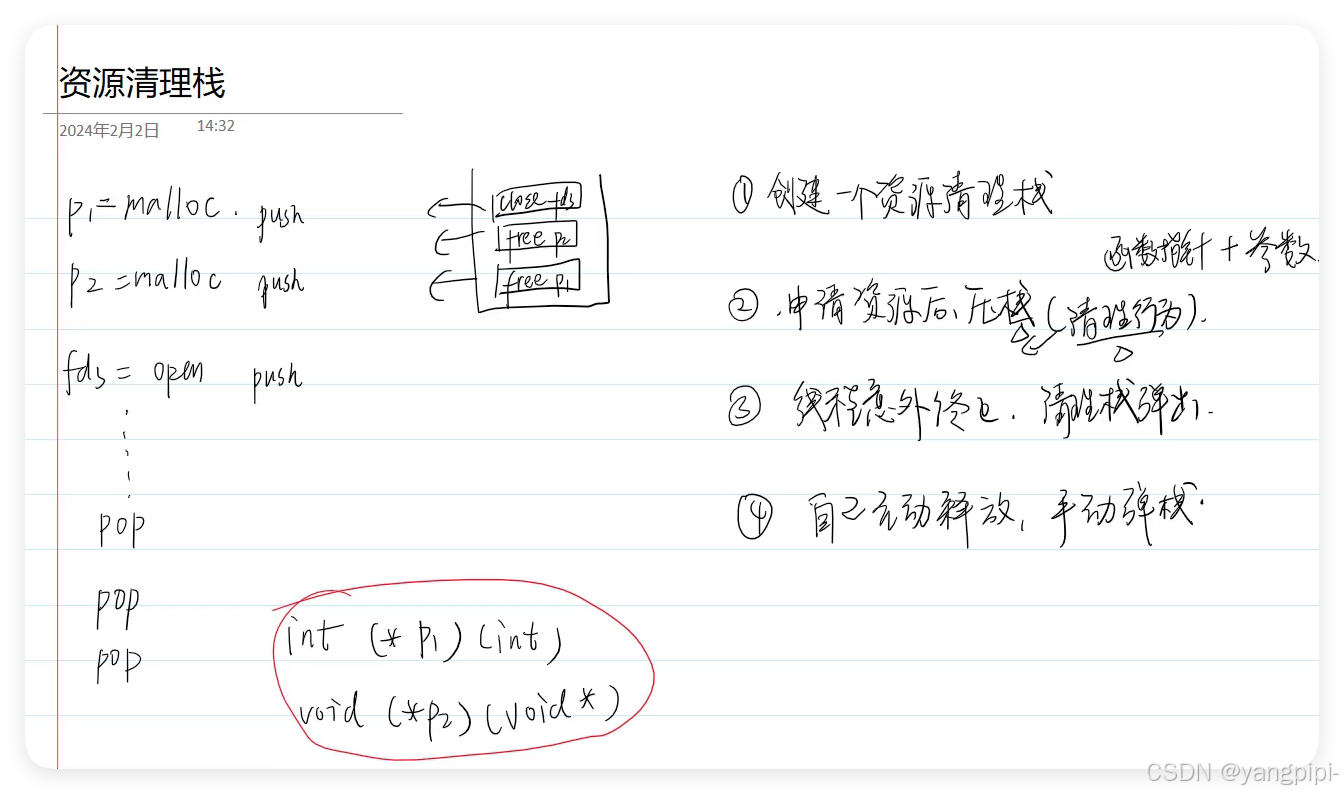 资源清理栈
2024年2月2日 14:32
p1=malloc. push
p2=malloc push
fd3 = open push
pop
pop
pop
close fd3
free p2
free p1
int (*p1)(int)
void (*p2)(void*)
① 创建一个资源清理栈
函数指针+参数
② 申请资源后、压栈(清理行为).
③ 线程意外终止. 清理栈弹出.
④ 自己主动释放, 手动弹栈.
CSDN @yangpipi-